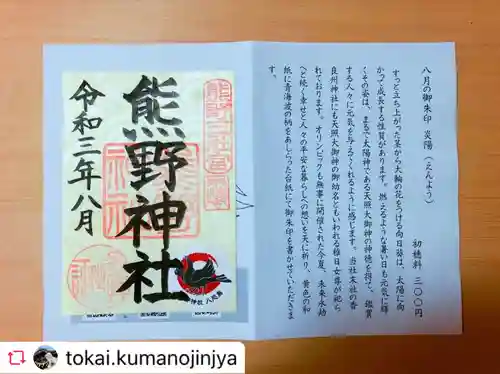 熊野神社
令和三年八月
八月の御朱印 炎陽(えんよう)
初穂料 三〇〇円
すっと立ち上がった茎から大輪の花をつける向日葵は、太陽に向
かって成長する性質があります。燃えるような暑い日も元気に輝
くその姿は、まるで太陽神である天照大御神の神徳を得て、鑑賞
する人々に元気を与えてくれるように感じます。当社末社の香
良州神社にも天照大御神の御幼名ともいわれる稚日女尊が祀ら
れております。オリンピックも無事に開催された今夏、未来永劫
へと続く幸せと人々の平安な暮らしへの想いを天に祈り、黄色の和
紙に青海波の柄をあしらった台紙にて御朱印を書かせていただきま
す。
tokai.kumanojinjya